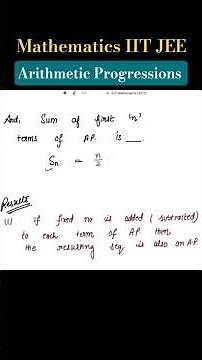 Mathematics IIT JEE
Arithmetic Progressions
And, Sum of first 'n'
terms of A.P. is ___.
Sn = n/2
Results
(1) if fixed no is added (subtracted)
to each term of AP then
the resulting seq is also an A.P.